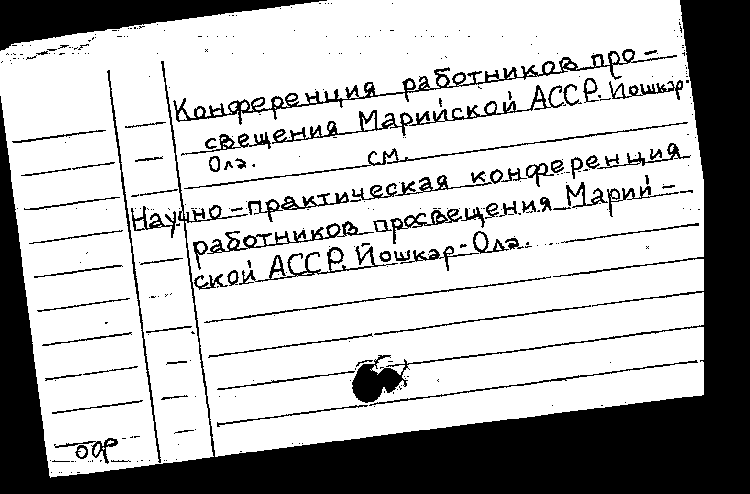 Конференция работников про-
свещения Марийской АССР. Йошкар-
Ола. см.
Научно-практическая конференция
работников просвещения Марий-
ской АССР. Йошкар-Ола.